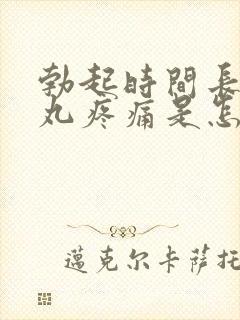 勃起時間長
丸疼痛是怎
邁克尔卡薩托